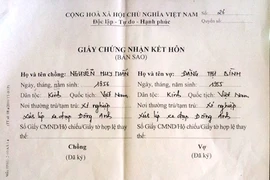 CỘNG HOÀ XÃ HỘI CHỦ NGHĨA VIỆT NAM
Độc lập - Tự do - Hạnh phúc
Số: 26
Quyển số:
GIẤY CHỨNG NHẬN KẾT HÔN
(BẢN SAO)
Họ và tên chồng: NGUYỄN HUY TUẤN
Ngày, tháng, năm sinh: 1956
Dân tộc: Kinh Quốc tịch: Việt Nam
Nơi thường trú/tạm trú: Xí nghiệp
xe đạp Đông Anh
Số Giấy CMND/Hộ chiếu/Giấy tờ hợp lệ thay thế:
Chồng
(Đã ký)
Họ và tên vợ: ĐẶNG THỊ BÌNH
Ngày, tháng, năm sinh: 1955
Dân tộc: Kinh Quốc tịch: Việt Nam
Nơi thường trú/tạm trú: Xí nghiệp
xe đạp Đông Anh
Số Giấy CMND/Hộ chiếu/Giấy tờ hợp lệ thay thế:
Vợ
(Đã ký)